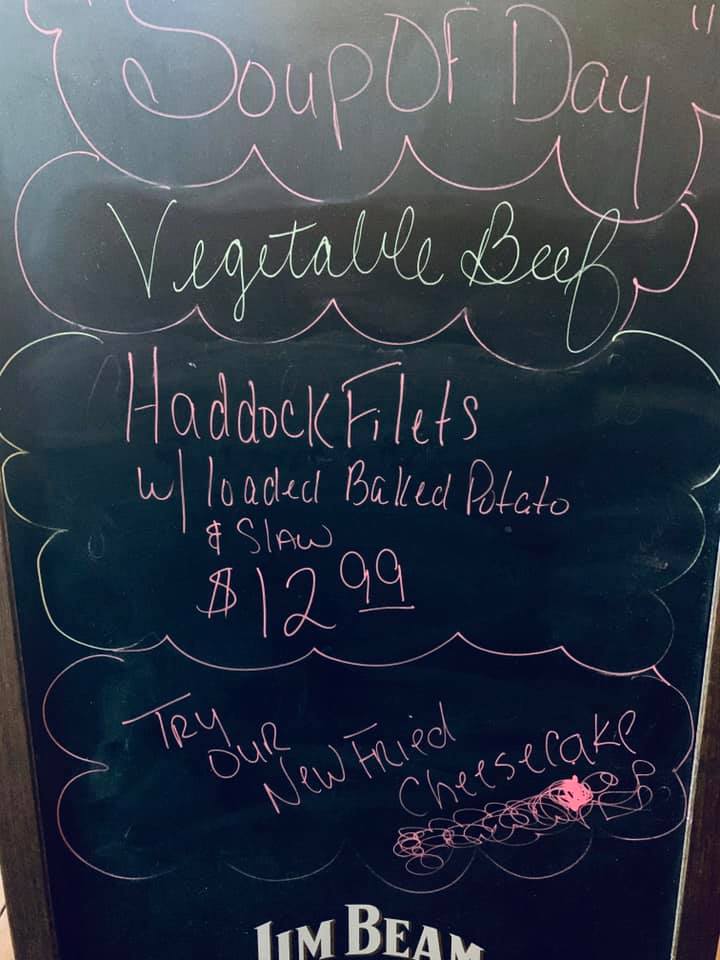 "Soup Of Day"
Vegetable Beef
Haddock Filets
w/ loaded Baked Potato
& Slaw
$12 99
Try
our
New Fried
Cheesecake
JIM BEAM